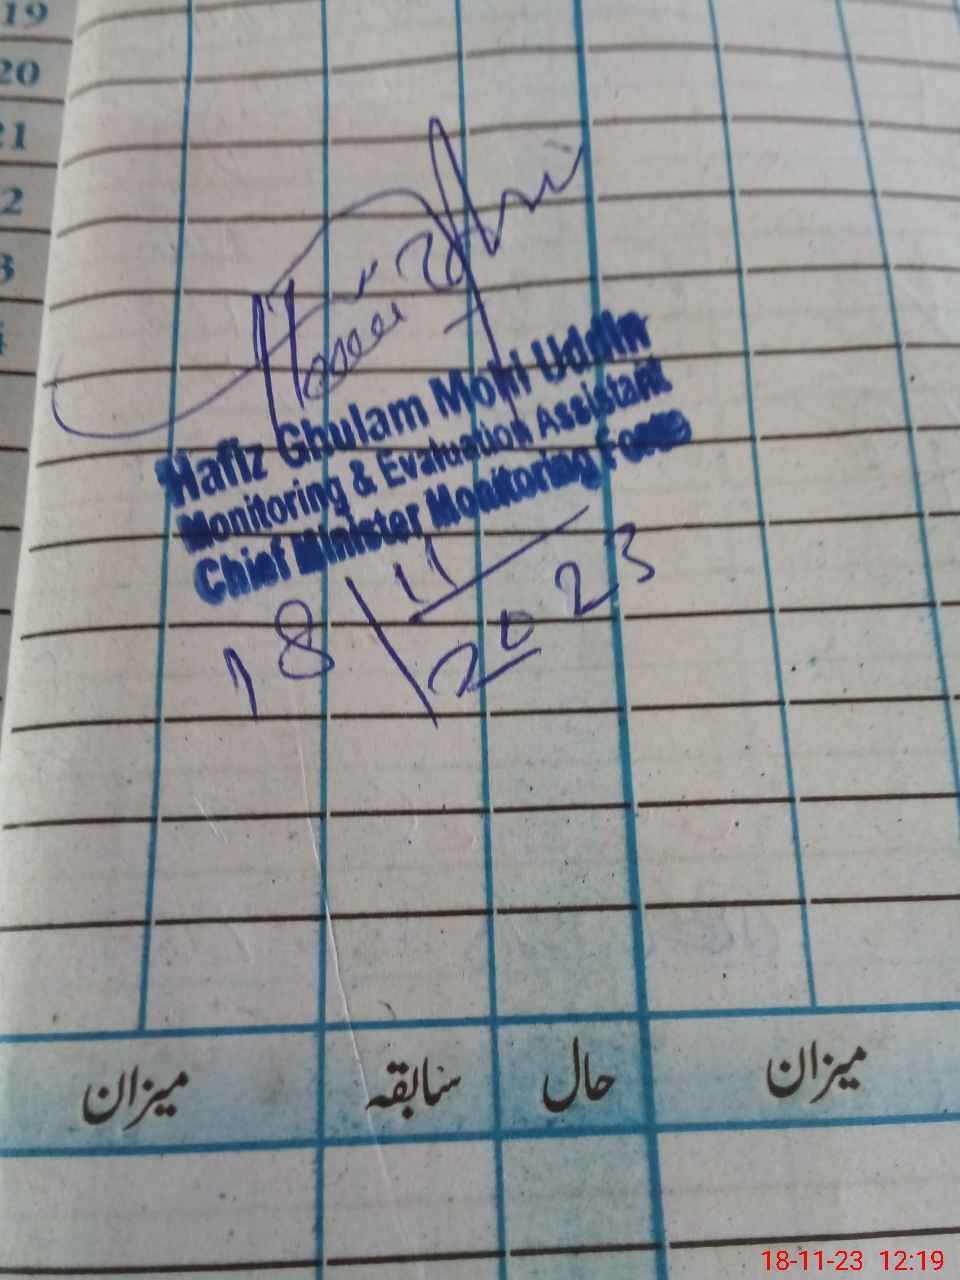 19
20
21
2
3
Hafiz Ghulam Mohi Uddin
Monitoring & Evaluation Assistant
Chief Minister Monitoring Force
18/11/2023
میزان حال سابقہ میزان
18-11-23 12:19